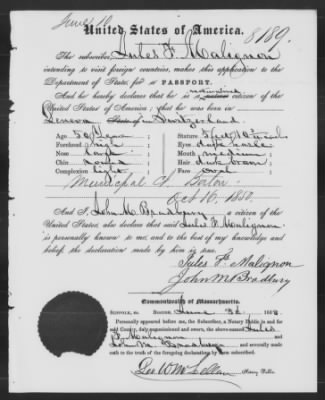 June 10
8189.
United States of America.
The subscriber, Jules F. Malignon
intending to visit foreign countries, makes this application to the
Department of State, for a PASSPORT.
And he hereby declares that he is a naturalized citizen of the
United States of America; that he was born in
Geneva Switzerland
Age 50 Years Stature 5 feet 10 inch
Forehead high Eyes dark hazel
Nose Mouth medium
Chin Hair dark brown
Complexion light Face oval
Municipal Ct Boston
Oct 16. 1850.
And I, John M. Bradbury a citizen of the
United States, also declare that said Jules F. Malignon.
is personally known to me, and to the best of my knowledge and
belief, the declaration made by him is true.
Jules F. Malignon
John M Bradbury
Commonwealth of Massachusetts.
SUFFOLK, ss. BOSTON: June 186
Personally appeared before me, the Subscriber, a Notary Public in and for
said County, duly commissioned and sworn, the above-named Jules
F. Malignon and
John M. Bradbury and severally made
oath to the truth of the foregoing declarations by them subscribed.
Geo. W. McLellan Notary Public.